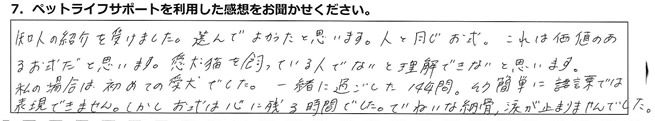 7. ペットライフサポートを利用した感想をお聞かせください。
知人の紹介を受けました。選んでよかったと思います。人と同じお式。これは価値のあ
るお式だと思います。愛犬猫を飼っている人でないと理解できないと思います。
私の場合は初めての愛犬でした。一緒に過ごした14年間。簡単に言葉では
表現できません。しかしお式は心に残る時間でした。ていねいな納骨、涙が止まりませんでした。